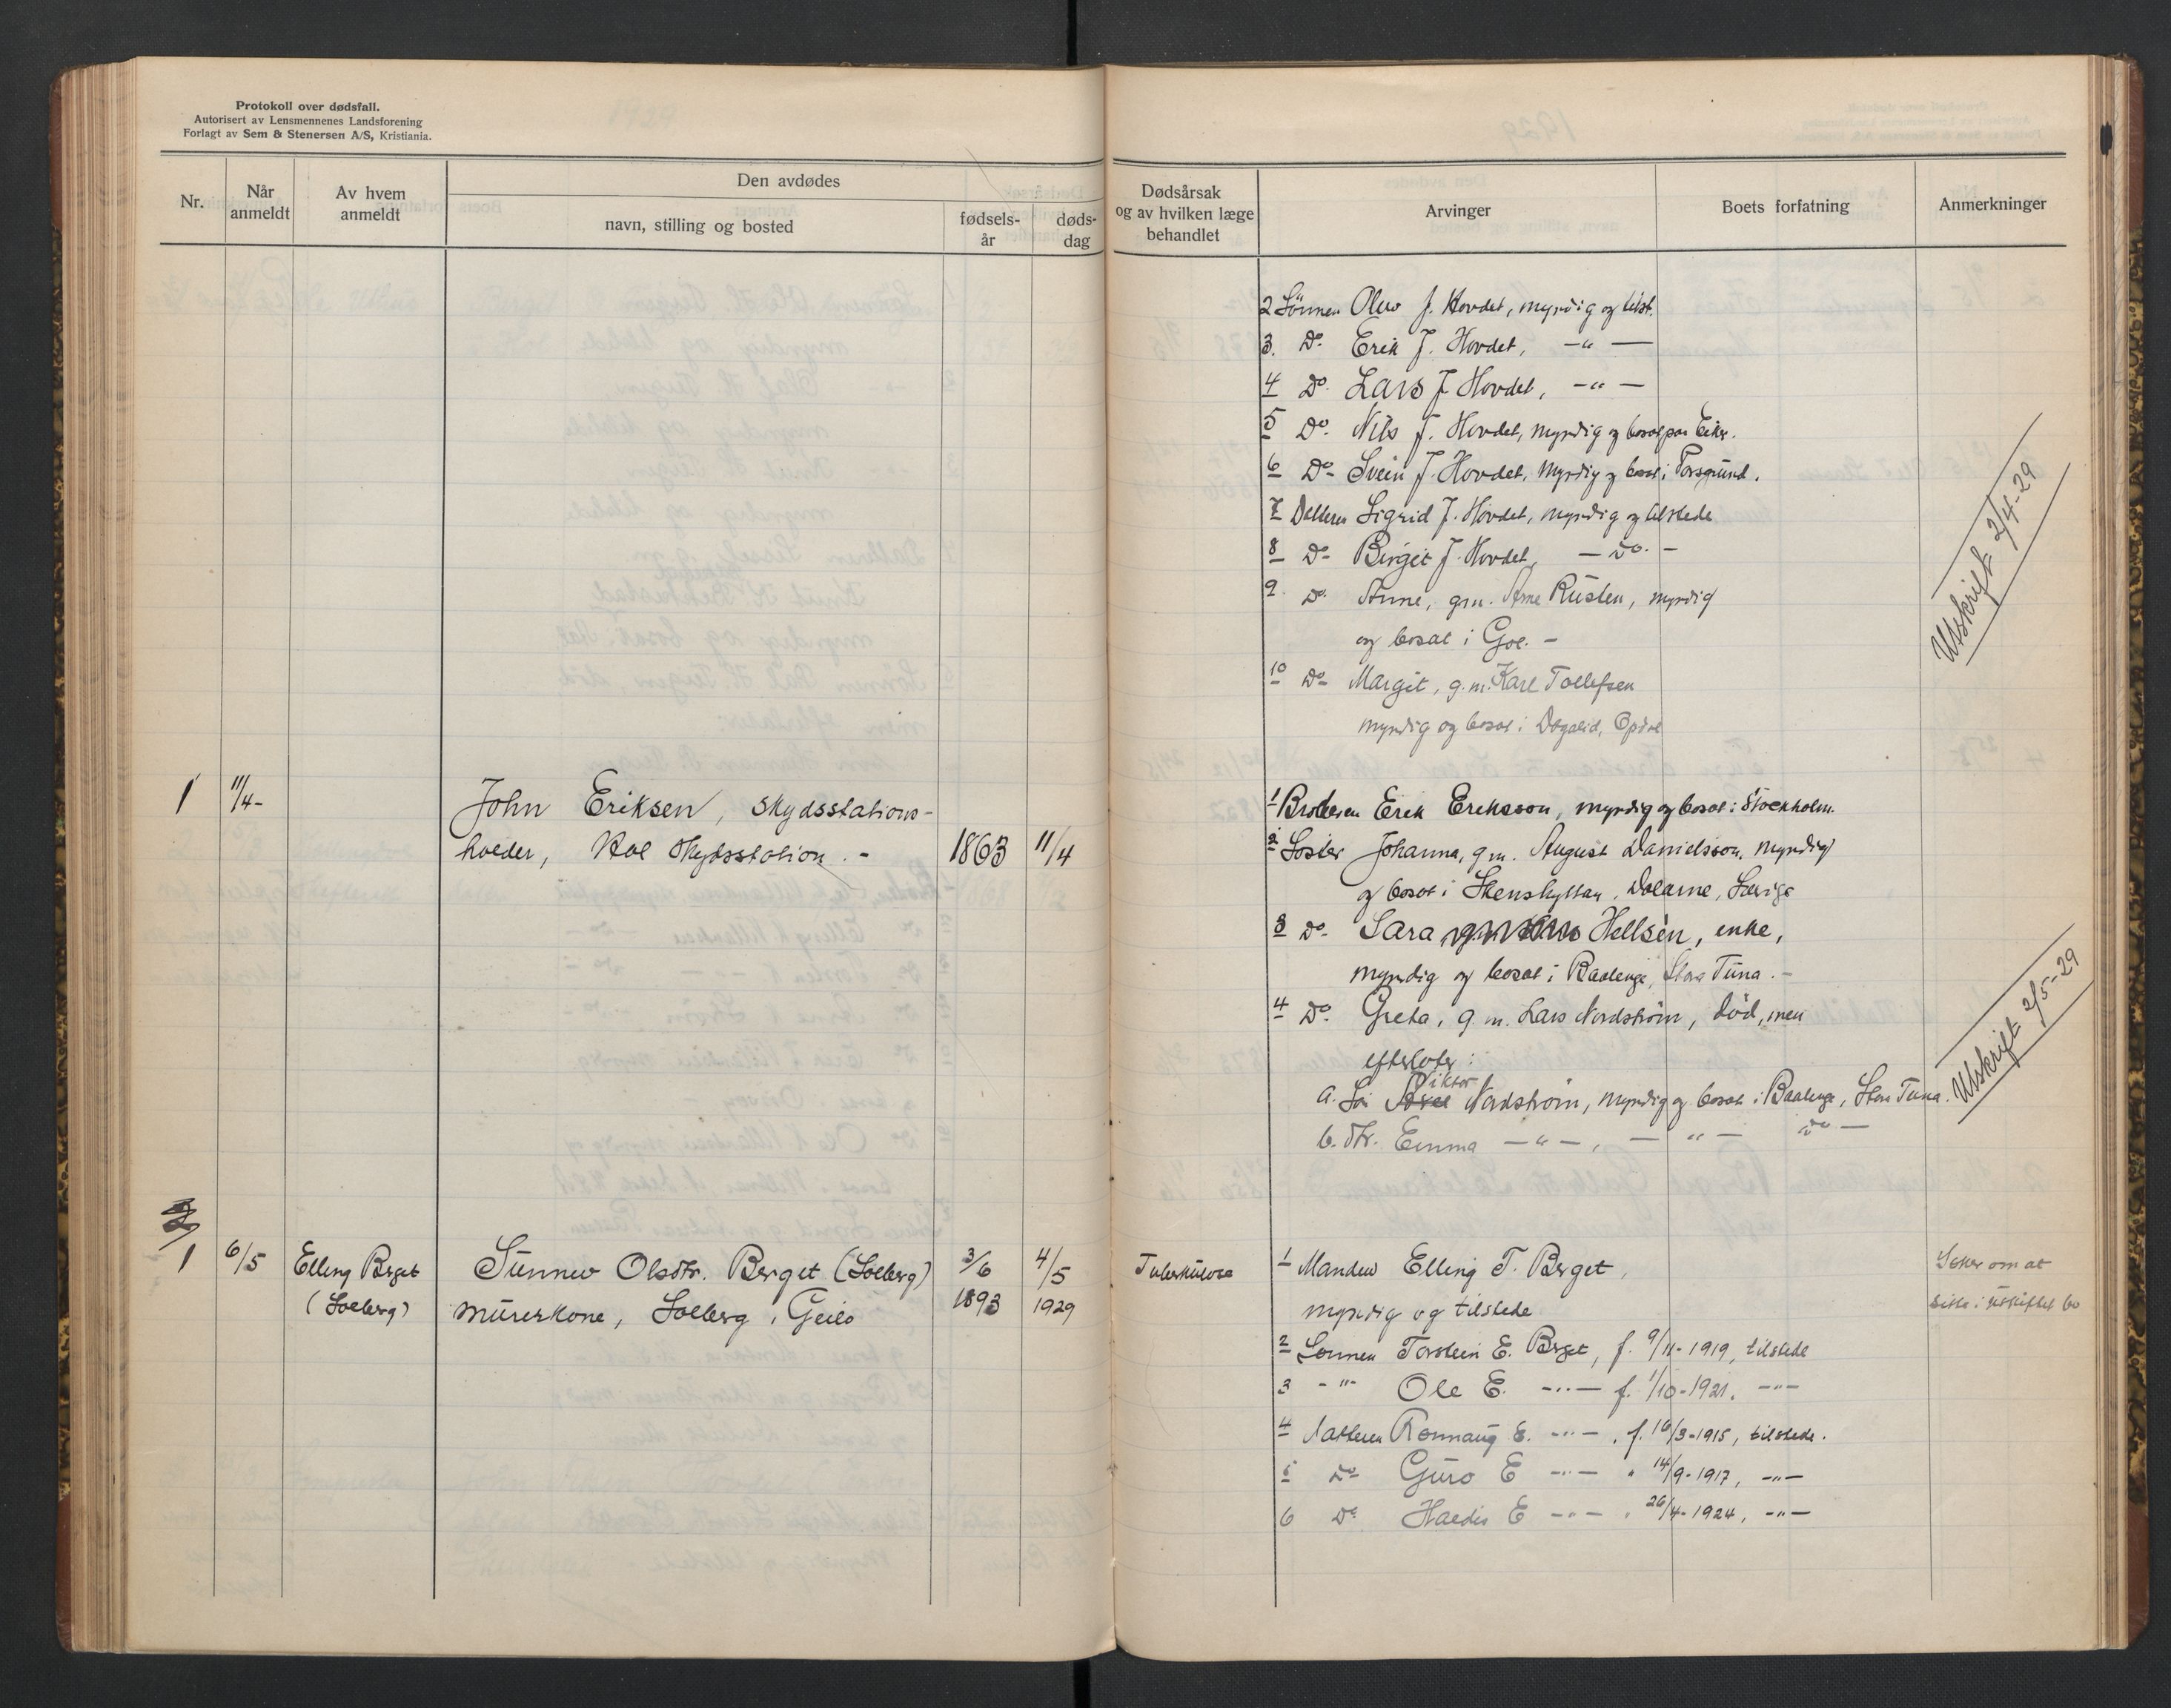 Protokoll over dødsfall.
Autorisert av Lensmennenes Landsforening
Forlagt av Sem & Stenersen A/S, Kristiania.
Nr.
Når anmeldt
Av hvem anmeldt
Den avdødes
navn, stilling og bosted
fødsels-år
døds-dag
Dødsårsak og av hvilken læge behandlet
Arvinger
Boets forfatning
Anmerkninger
2 Sönnen Olav J. Hovdet, myndig og tilst.
3. Do. Erik J. Hovdet, -"-
4 Do. Lars J. Hovdet, -"-
5 Do. Nils J. Hovdet, myndig og bosat paa Eiker.
6 Do. Svein J. Hovdet, myndig og bosat i Porsgrund.
7 Datteren Sigrid J. Hovdet, myndig og tilstede
8 Do. Birgit J. Hovdet, - Do. -
9. Do. Anne, gm. Arne Rusten, myndig
og bosat i Gol. -
10 Do. Margit, g.m. Karl Tollefsen
myndig og bosat i Dagalid, Opdal
Utskrift 2/4-29
1 11/4- John Eriksen, skydsstations-
holder, Hol Skydsstation. - 1863 11/4
1 Broderen Erik Eriksson, myndig og bosat i Stockholm.
2 Søster Johanna, gm. August Danielsson, myndig
og bosat i Stenshyttan, Dalarne, Sverige
3 Do. Sara Hellsèn, enke,
myndig og bosat i Baalenge, Stora Tuna. -
4 Do. Greta, g.m. Lars Nordstrøm, død, men
efterlater:
a. Søn Viktor Nordstrøm, myndig og bosat i Baalenge, Stora Tuna.
b. dtr. Emma -"-, -"- do -
Utskrift 2/5-29
2
1 6/5 Elling Berget
(Solberg)
Sunnev Olsdtr. Berget (Solberg)
murerkone, Solberg, Geilo
3/6
1893
4/5
1929
Tuberkulose
1 Manden Elling T. Berget,
myndig og tilstede
2 Sønnen Torstein E. Berget, f. 9/11-1919, tilstede
3 -"- Ole E. -"- f. 1/10-1921, -"-
4 Datteren Rønnaug E. -"-, f. 16/3-1915, tilstede.
5 Do Guro E -"- " 14/9-1917, -"-
6 Do. Haldis E -"- " 26/4-1924, -"-
Søker om at
sitte i uskiftet bo